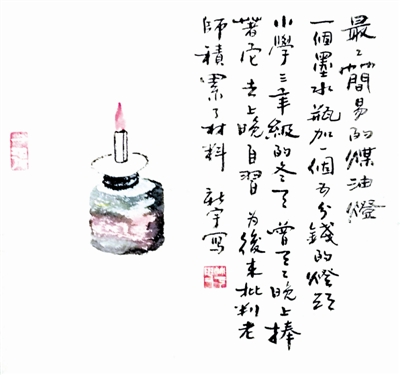 最〻簡易的煤油燈
一個墨水瓶加一個五分錢的燈頭
小學三年級的冬天 曾天〻晚上捧
著它去上晚自習 為後來批判老
師積累了材料 新宇寫